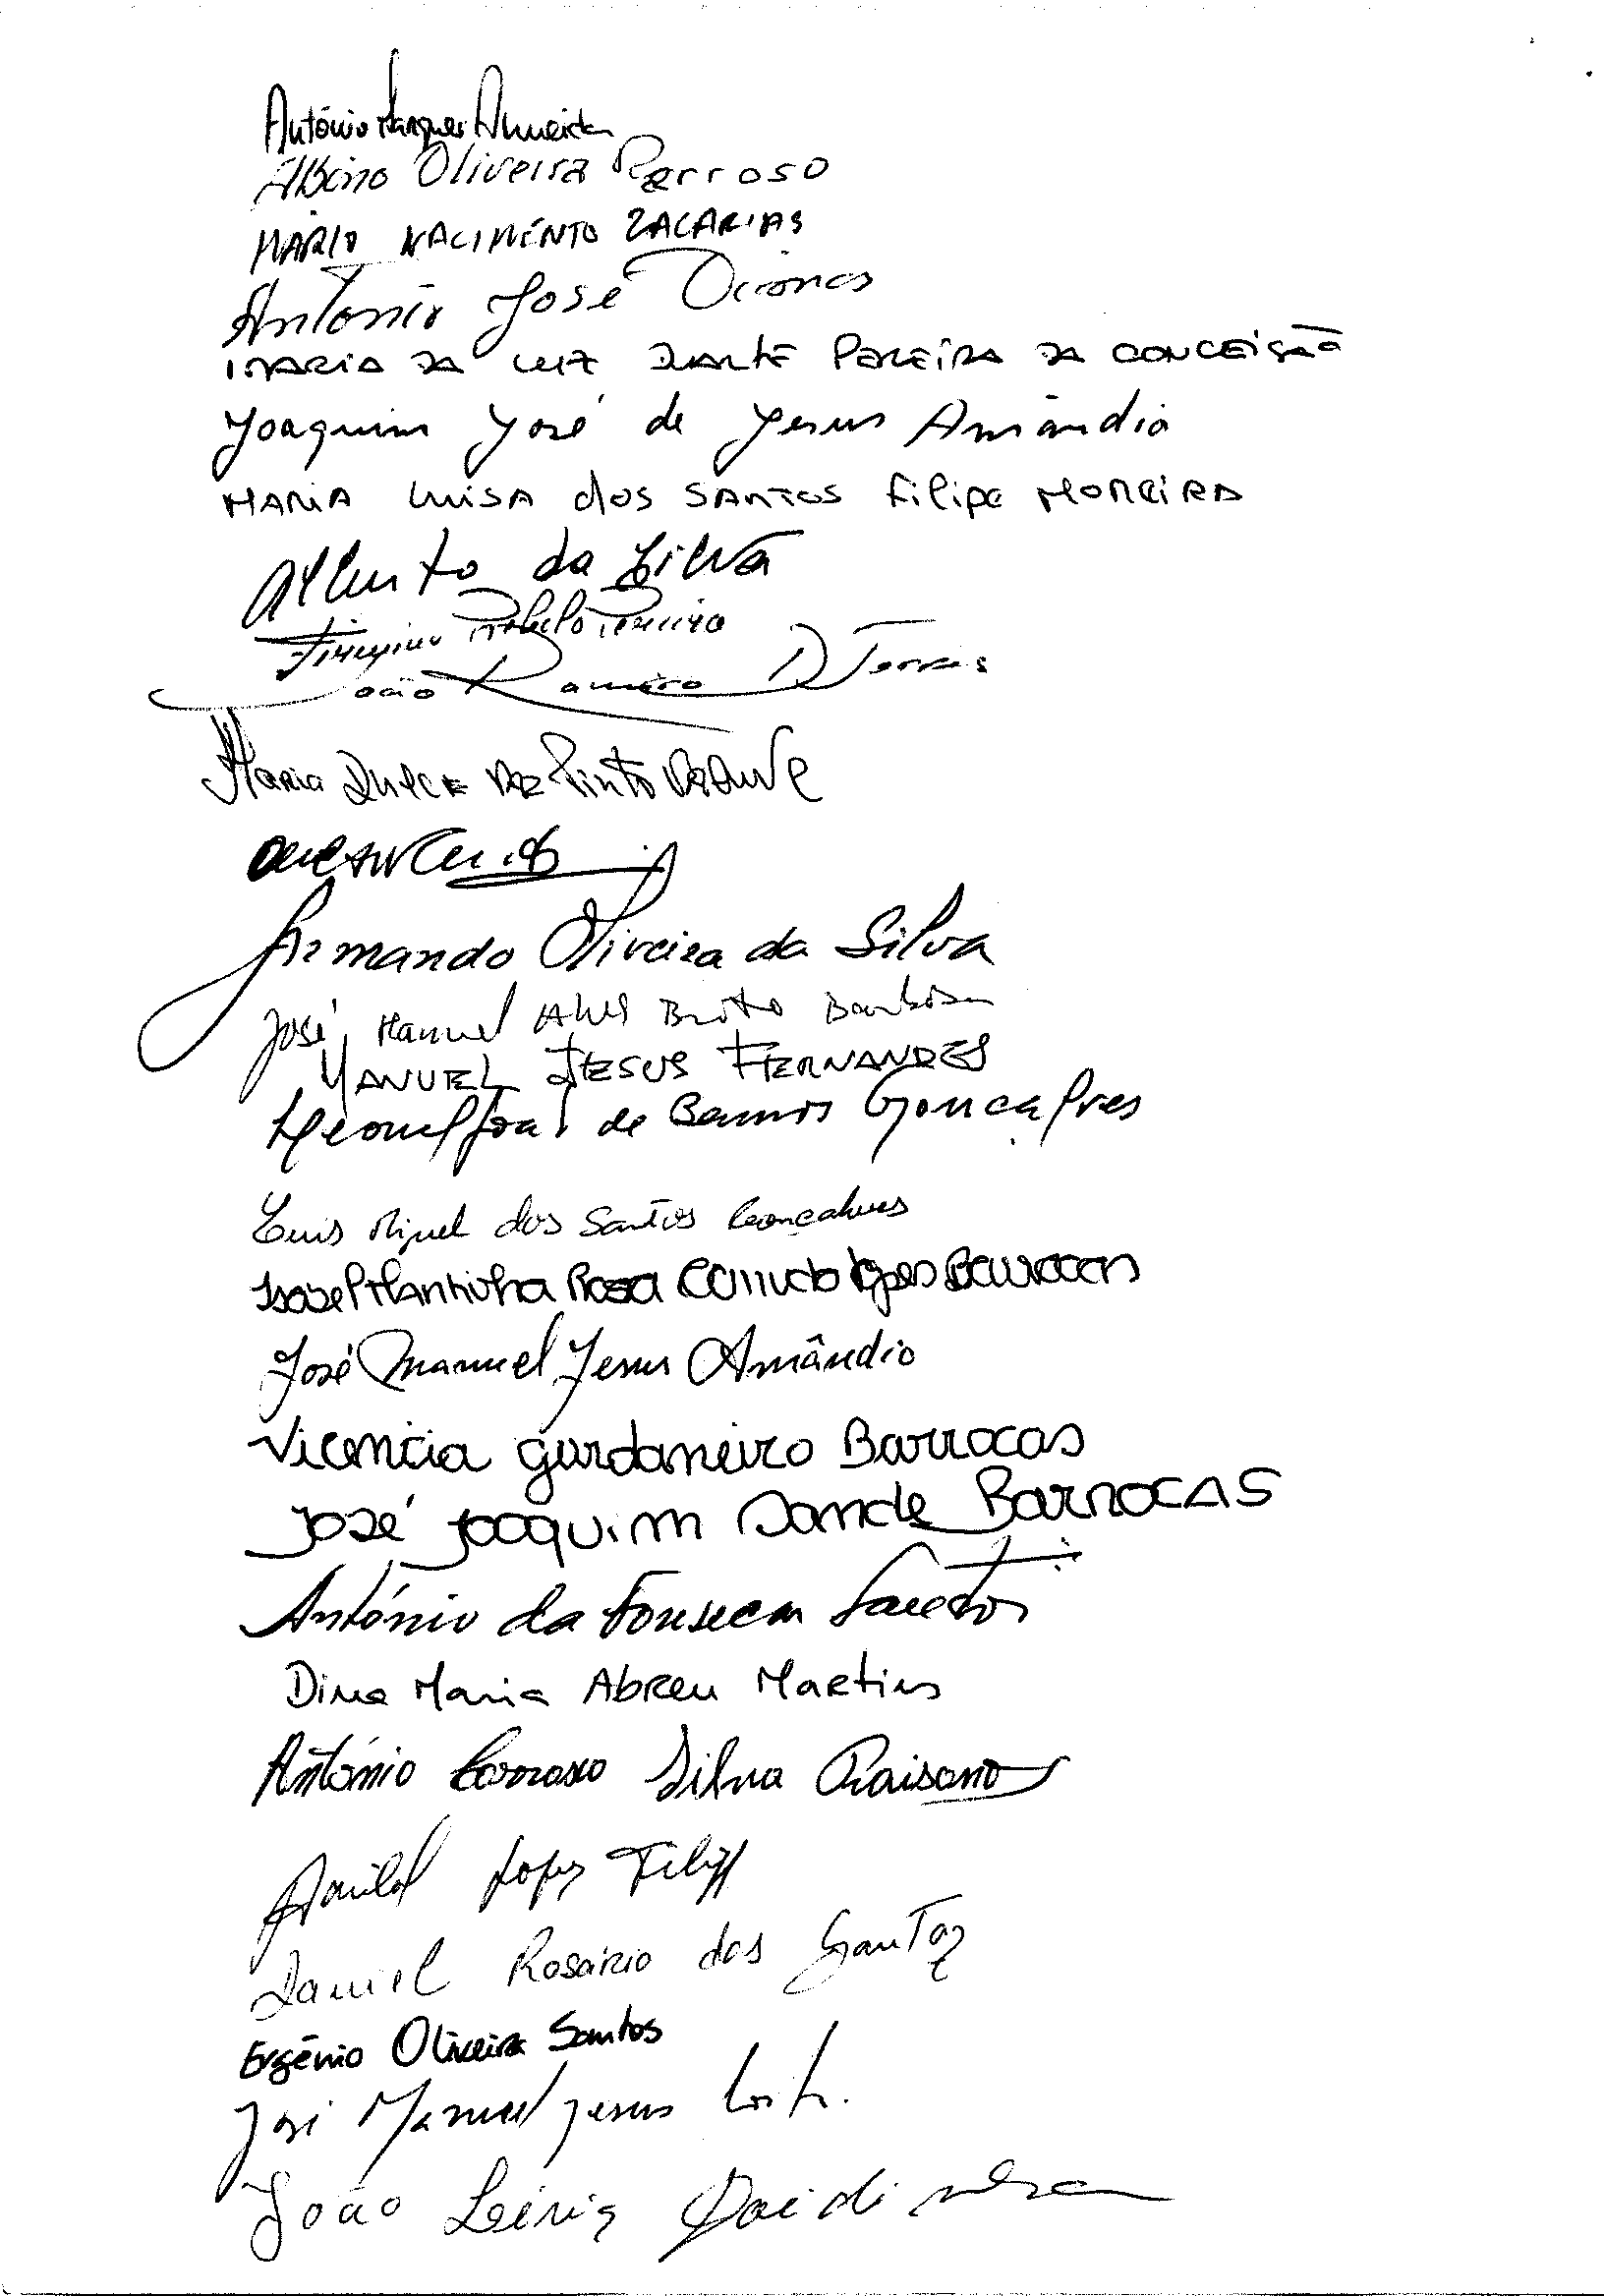 António Marques Almeida
Albino Oliveira Barroso
MÁRIO NACIMENTO ZACARIAS
António José
MARIA DA LUZ DUARTE PEREIRA DA CONCEIÇÃO
Joaquim José de Jesus Amândio
MARIA LUISA dos SANTOS Filipe MOREIRA
Alberto da Silva
Firmino Rebelo Pereira
João Ramiro D Torres
Maria DULCE VAZ Pinto
Armando Oliveira da Silva
José Manuel Alves Brito Barbosa
MANUEL JESUS FERNANDES
Leonel José de Barros Gonçalves
Luis Miguel dos Santos Gonçalves
Isabel Mantinha Rosa Canudo Lopes Barrocas
José Manuel Jesus Amândio
Vicencia gardaneiro Barrocas
José Joaquim Sande BARROCAS
António da Fonseca Santos
Dina Maria Abreu Martins
António Barroso Silva Raisano
Lopes Filipe
Daniel Rosário dos Santos
Eugénio Oliveira Santos
José Manuel Jesus
João Leiria